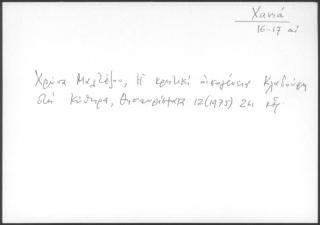 Χανιά
16-17 αι
Χρύσα Μαλτέζου, Η κρητική οικογένεια Κλαδούρη
στα Κύθηρα, Θησαυρίσματα 12 (1975) 24 κεξ.